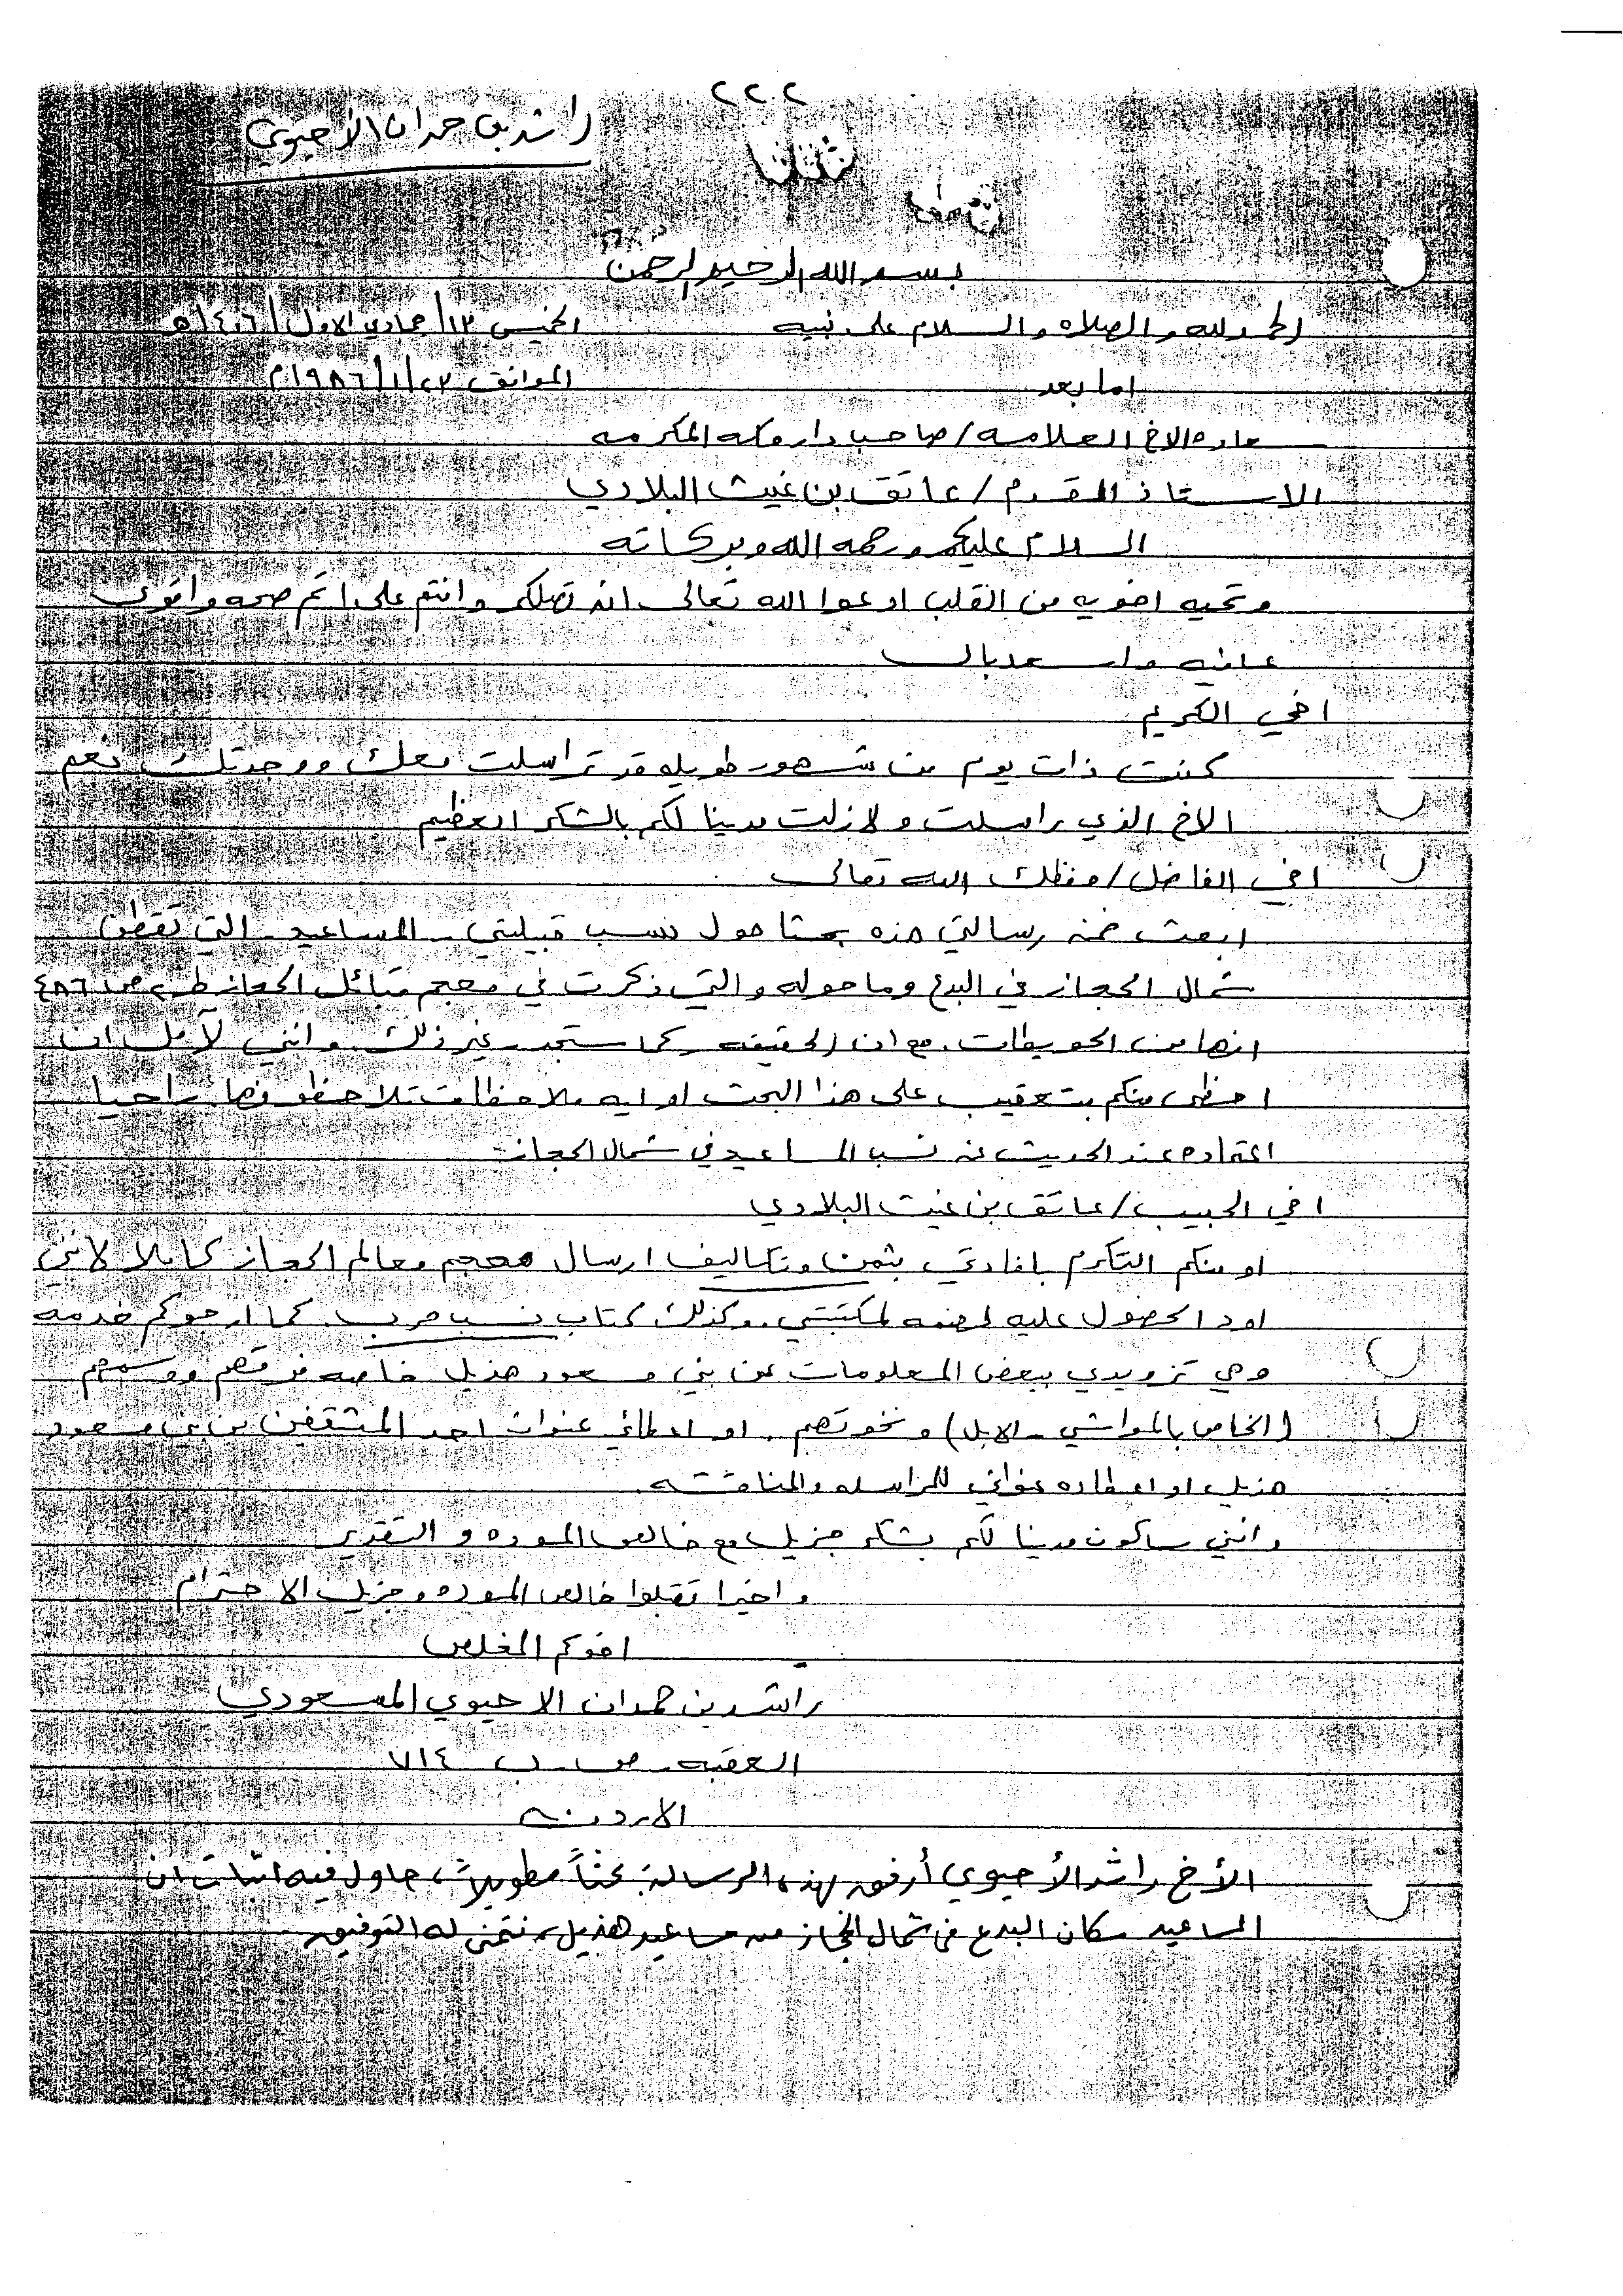 ٢٢٢
راشد بن حمدان الأحيوي
بسم الله الرحيم الرحمن
الحمد لله والصلاه والسلام على نبيه
الخميس ١٣/جمادي الاول/١٤٠٦هـ
اما بعد
الموافق ٢٣/١/١٩٨٦م
سعاده الاخ العلامه/صاحب دار مكه المكرمه
الاستاذ المقدم/عاتق بن غيث البلادي
السلام عليكم ورحمه الله وبركاته
وتحيه اخويه من القلب ادعوا الله تعالى ان تصلكم وانتم على اتم صحه واقوى
عافيه واسعد بال
اخي الكريم
كنت ذات يوم من شهور طويله قد تراسلت معك ووجدتك نعم
الاخ الذي راسلت ولازلت مدينا لكم بالشكر العظيم
اخي الفاضل/حفظك الله تعالى
ابعث ضمن رسالتي هذه بحثا حول نسب قبيلتي - المساعيد - التي تقطن
شمال الحجاز في البدع وما حوله والتي ذكرت في معجم قبائل الحجاز ط٢ ص٤٨٦
انها من الحويطات. مع ان الحقيقه - كما ستجد - غير ذلك. وانني لآمل ان
احظى منكم بتعقيب على هذا البحث او ايه ملاحظات تلاحظونها. راجيا
اعتماده عند الحديث عن نسب المساعيد في شمال الحجاز
اخي الحبيب/عاتق بن غيث البلادي
او منكم التكرم بافادتي بثمن وتكاليف ارسال معجم معالم الحجاز كاملا لانني
اود الحصول عليه لضمه لمكتبتي. وكذلك كتاب نسب حرب. كما ارجوكم خدمه
وهي تزويدي ببعض المعلومات عن بني مسعود هذيل خاصه فرقهم ووسمهم
(الخاص بالمواشي - الابل) ونخوتهم. او اعطائي عنوان احد المثقفين من بني مسعود
هذيل او اعطاءه عنواني للمراسله والمناقشه
وانني ساكون مدينا لكم بشكر جزيل مع خالص الموده والتقدير
واخيرا تقبلوا خالص الموده وجزيل الاحترام
اخوكم المخلص
راشد بن حمدان الاحيوي المسعودي
العقبه - ص.ب ٧١٤
الاردن
الأخ راشد الأحيوي أرفق بهذه الرسالة بحثاً مطولاً، حاول فيه اثبات ان
المساعيد سكان البدع في شمال الحجاز من مساعيد هذيل، نتمنى له التوفيق